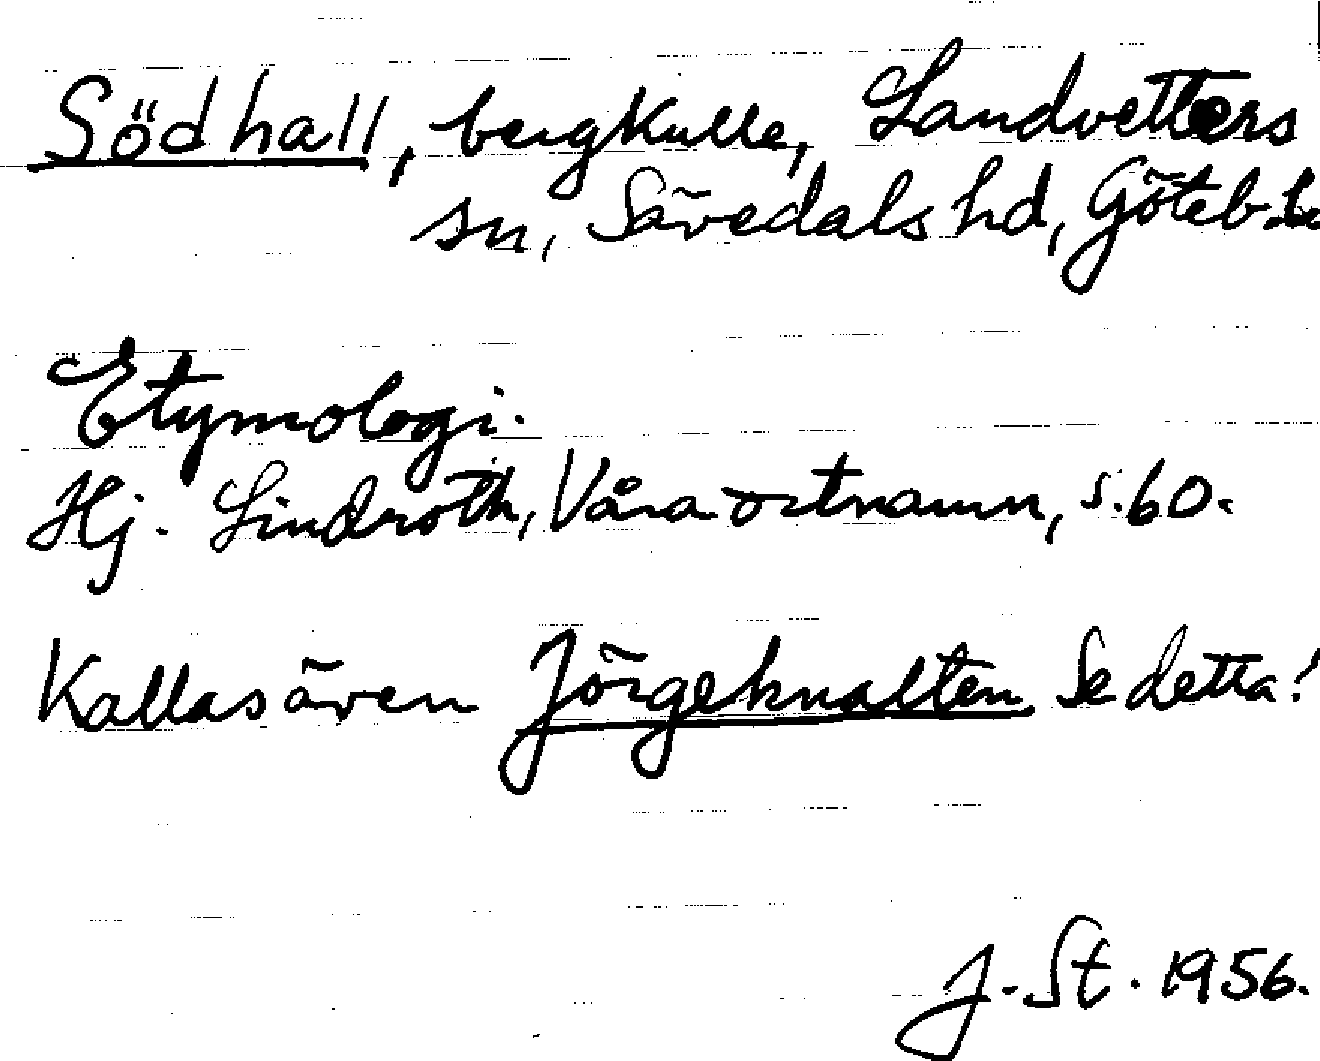 Södhall, bergkulle, Landvetters
sn, Sävedals hd, Göteb.
Etymologi.
Hj. Lindroth, Våra ortnamn, s. 60.
Kallas även Jörgeknalten Se detta!
J. St. 1956.